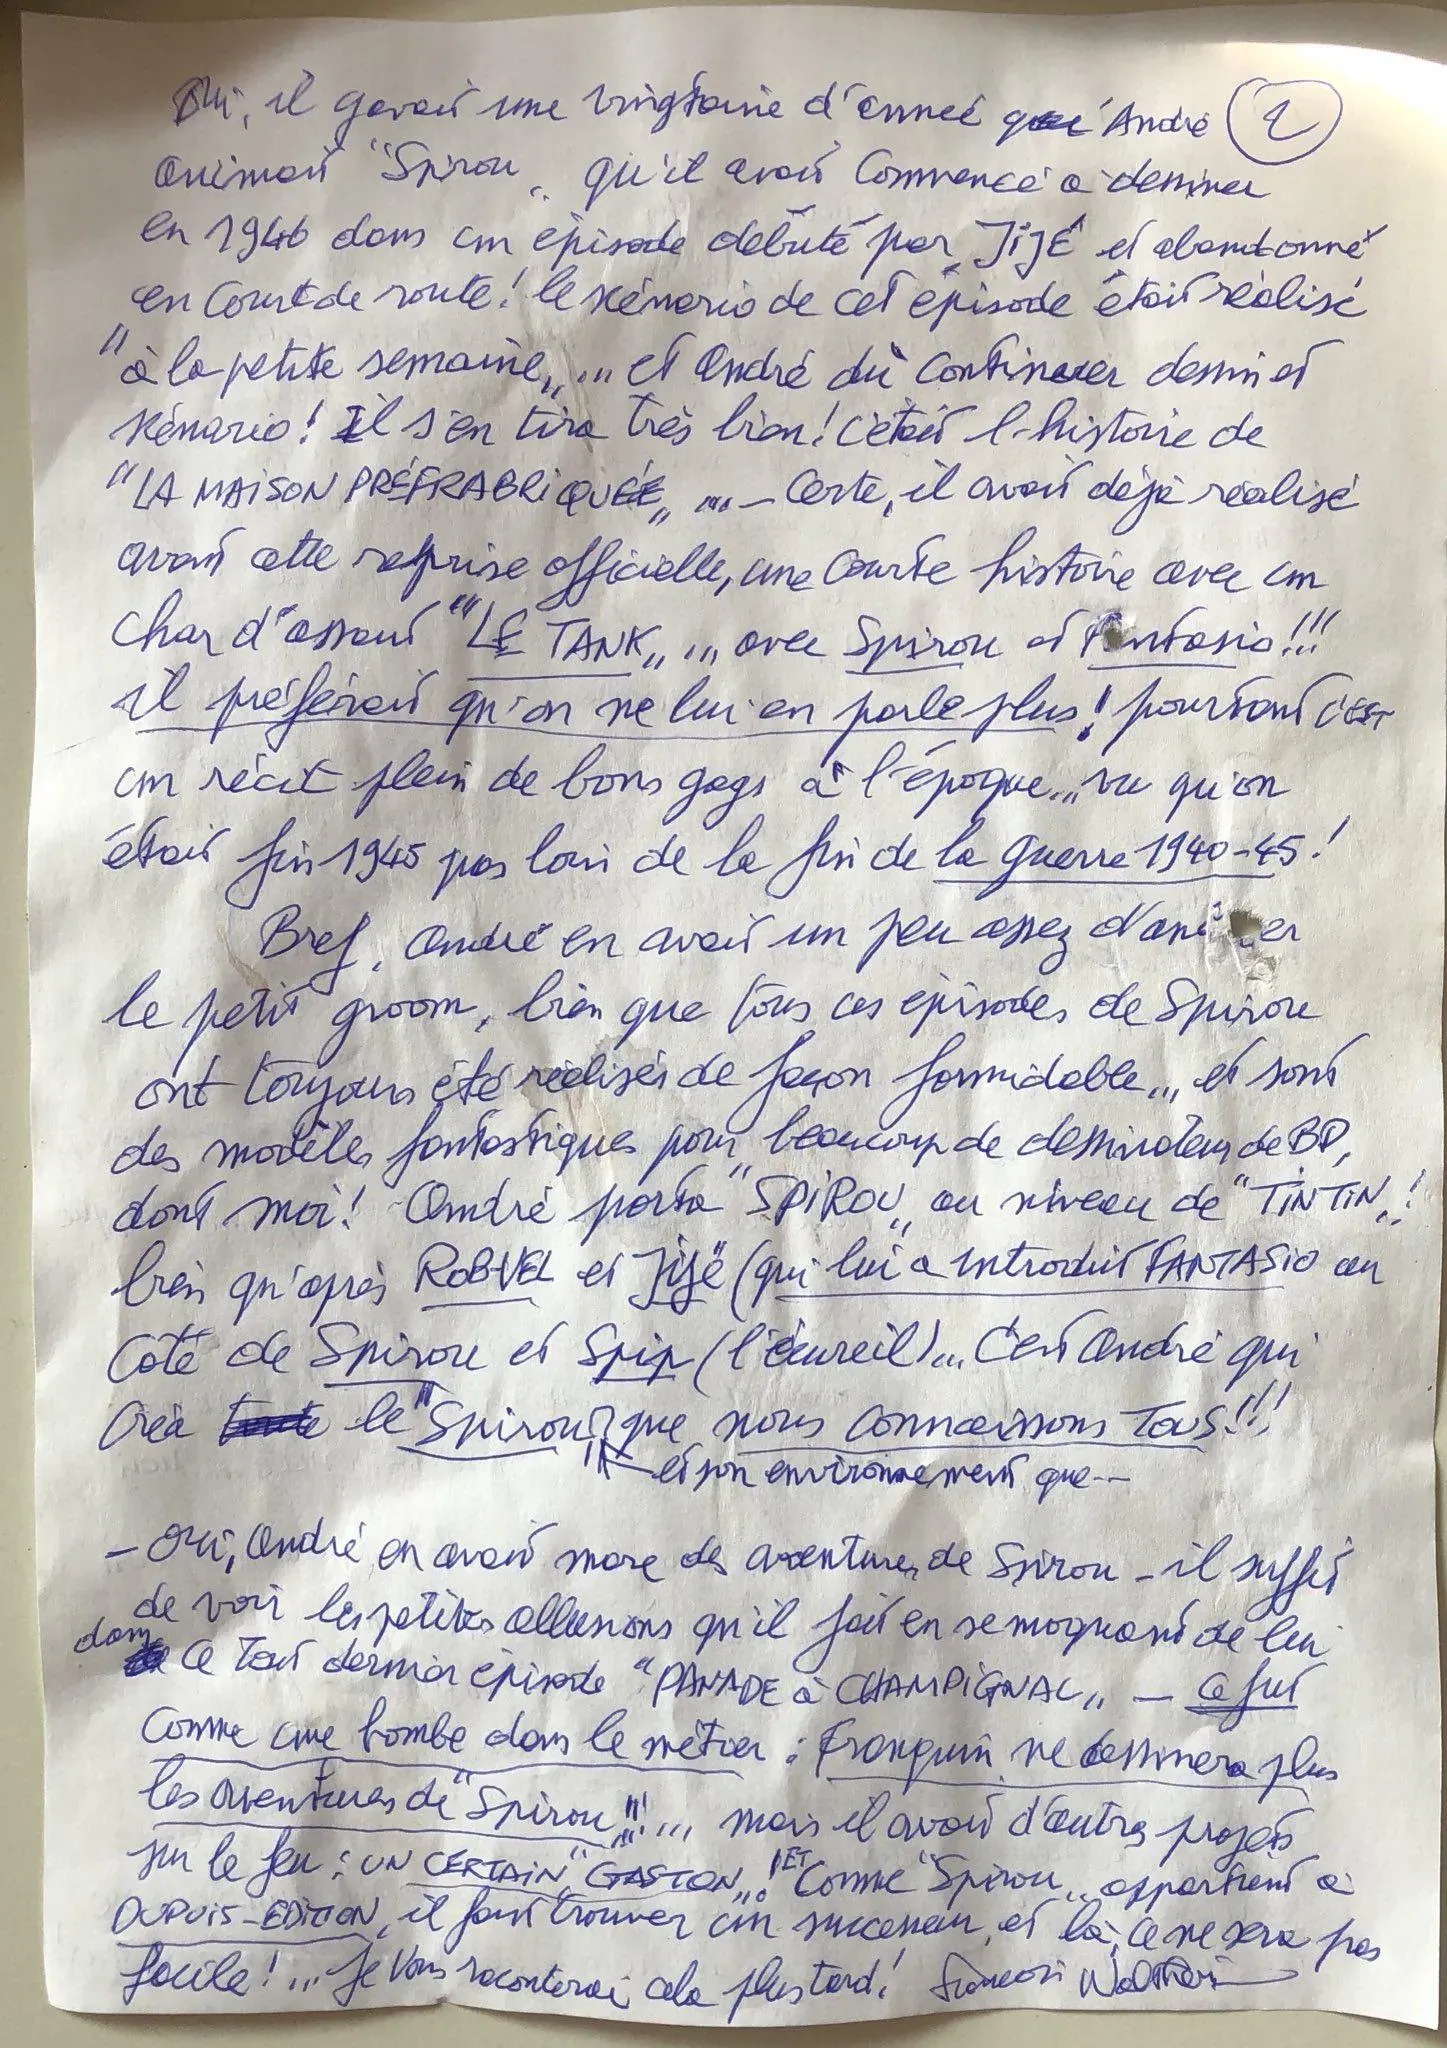 Oui, il y avait une vingtaine d'année que André 2
animait "Spirou" qu'il avait commencé à dessiner
en 1946 dans un épisode débuté par JIJÉ et abandonné
en court de route! le scénario de cet épisode était réalisé
"à la petite semaine"... et André dû continuer dessin et
scénario! Il s'en tira très bien! c'était l'histoire de
"LA MAISON PRÉFRABRIQUÉE"... - Certe, il avait déjà réalisé
avant cette reprise officielle, une courte histoire avec un
char d'assaut "LE TANK"... avec Spirou et Fantasio!!!
il préférait qu'on ne lui en parle plus! pourtant C'EST
un récit plein de bons gags à l'époque... vu qu'on
était fin 1945 pas loin de la fin de la guerre 1940-45!
Bref, André en avait un peu assez d'animer
le petit groom, bien que tous ces épisodes de Spirou
ont toujours été réalisés de façon formidable... et sont
des modèles fantastiques pour beaucoup de dessinateurs de BD,
dont moi! André porta "SPIROU" au niveau de "TINTIN"!
bien qu'après ROB-VEL et Jijé (qui lui a introduit FANTASIO au
côté de Spirou et Spip (l'écureil)... C'est André qui
créa le "Spirou" que nous connaissons Tous!!!
et son environnement que--
- Oui, André en avait mare des aventures de Spirou - il suffit
de voir les petites allusions qu'il fait en se moquant de lui
dans ce tout dernier épisode "PANADE à CHAMPIGNAC" - ce fut
comme une bombe dans le métier : Franquin ne dessinera plus
les aventures de "Spirou"!!!... mais il avait d'autres projets
sur le feu : UN CERTAIN "GASTON"! ET Comme "Spirou" appartient à
DUPUIS-EDITION, il faut trouver un successeur, et là, ce ne sera pas
facile!... Je vous raconterai cela plus tard! François Walthéry